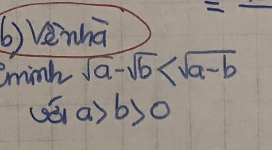 =
b) Về nhà
minh √a - √b < √(a-b)
với a > b > 0